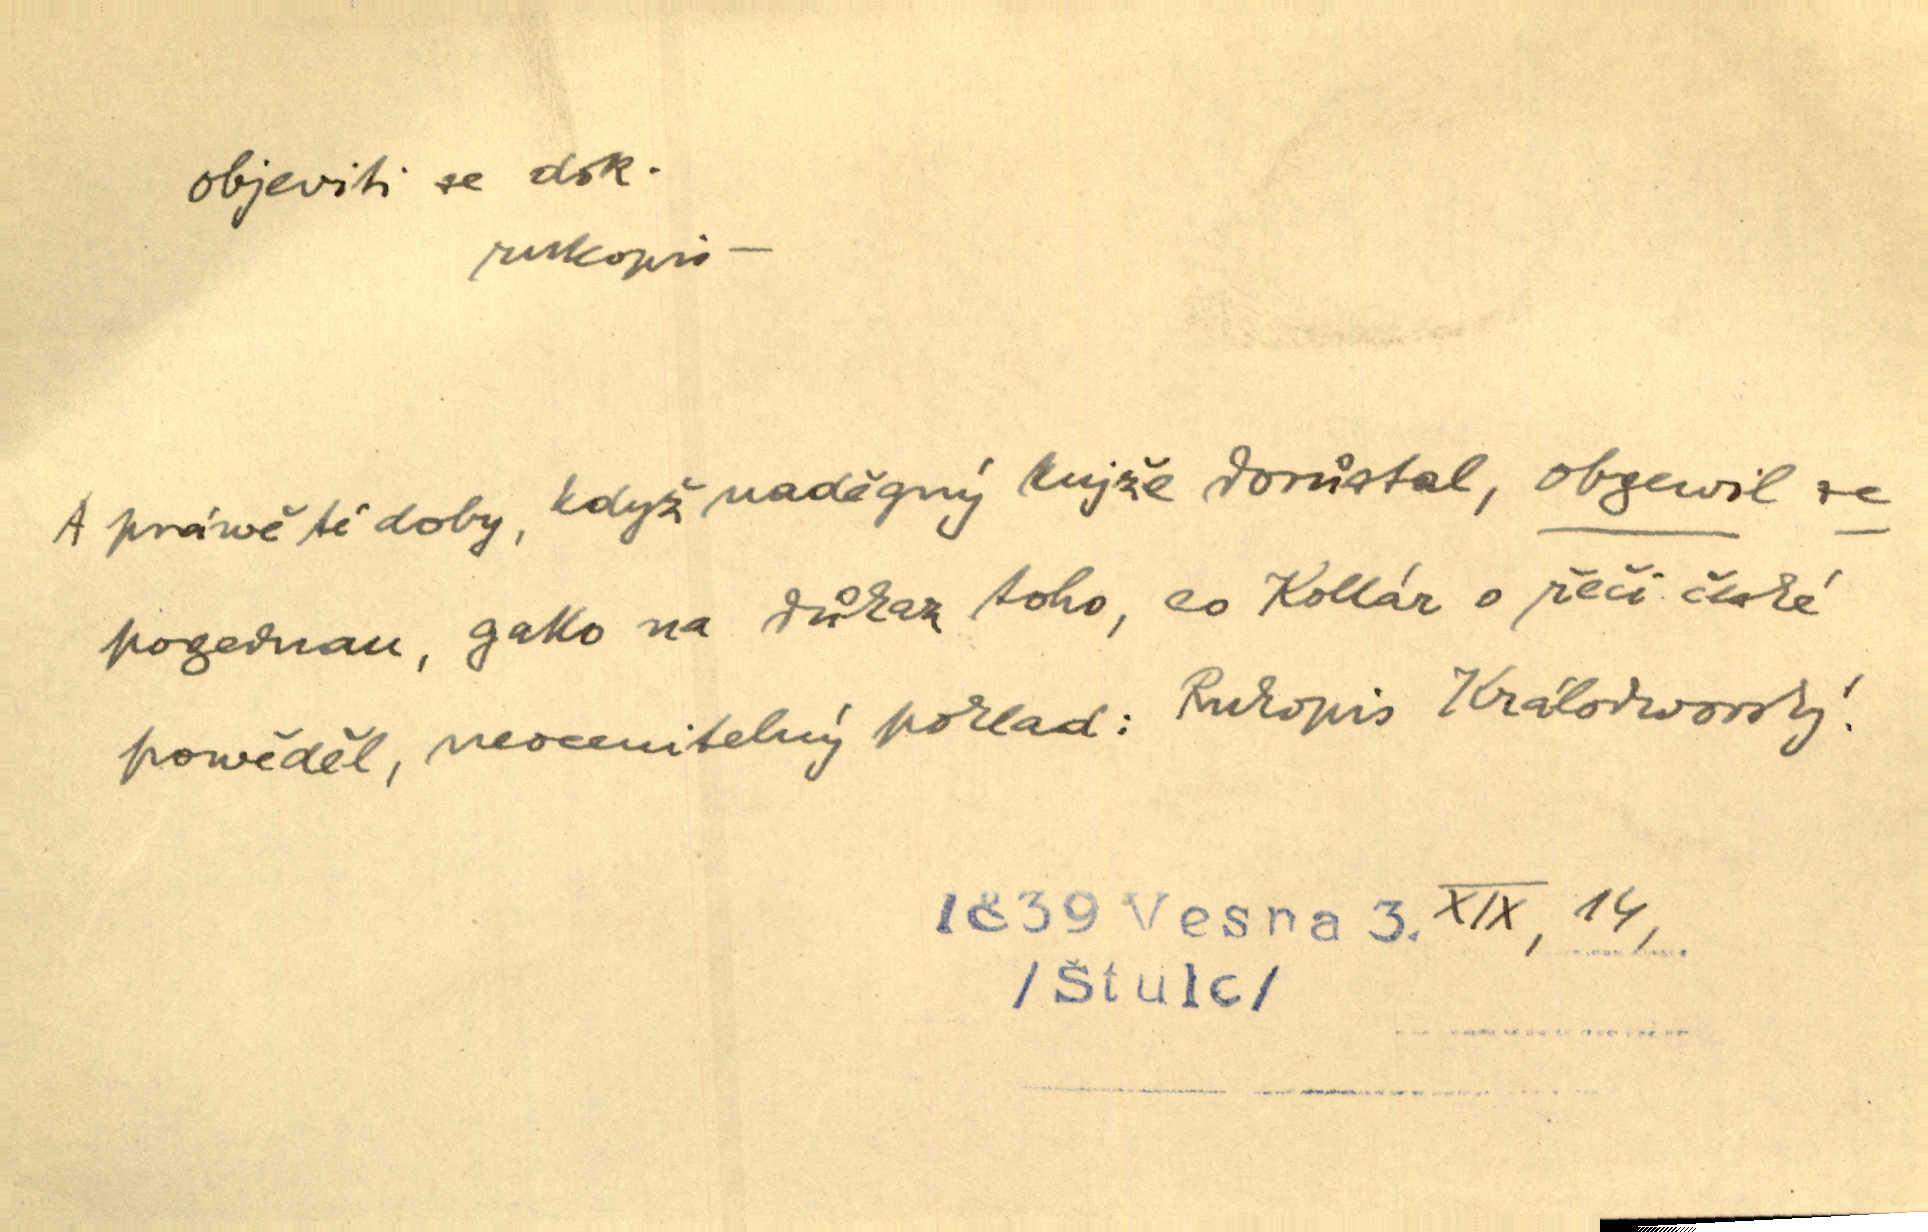 objeviti se dok.
rukopis —
A práwě té doby, když naděgný knjže dorůstal, obgewil se
pogednau, gako na důkaz toho, co Kollár o řeči české
powěděl, neocenitelný poklad: Rukopis Králodworský!
1839 Vesna 3. XIX, 14,
/Štulc/